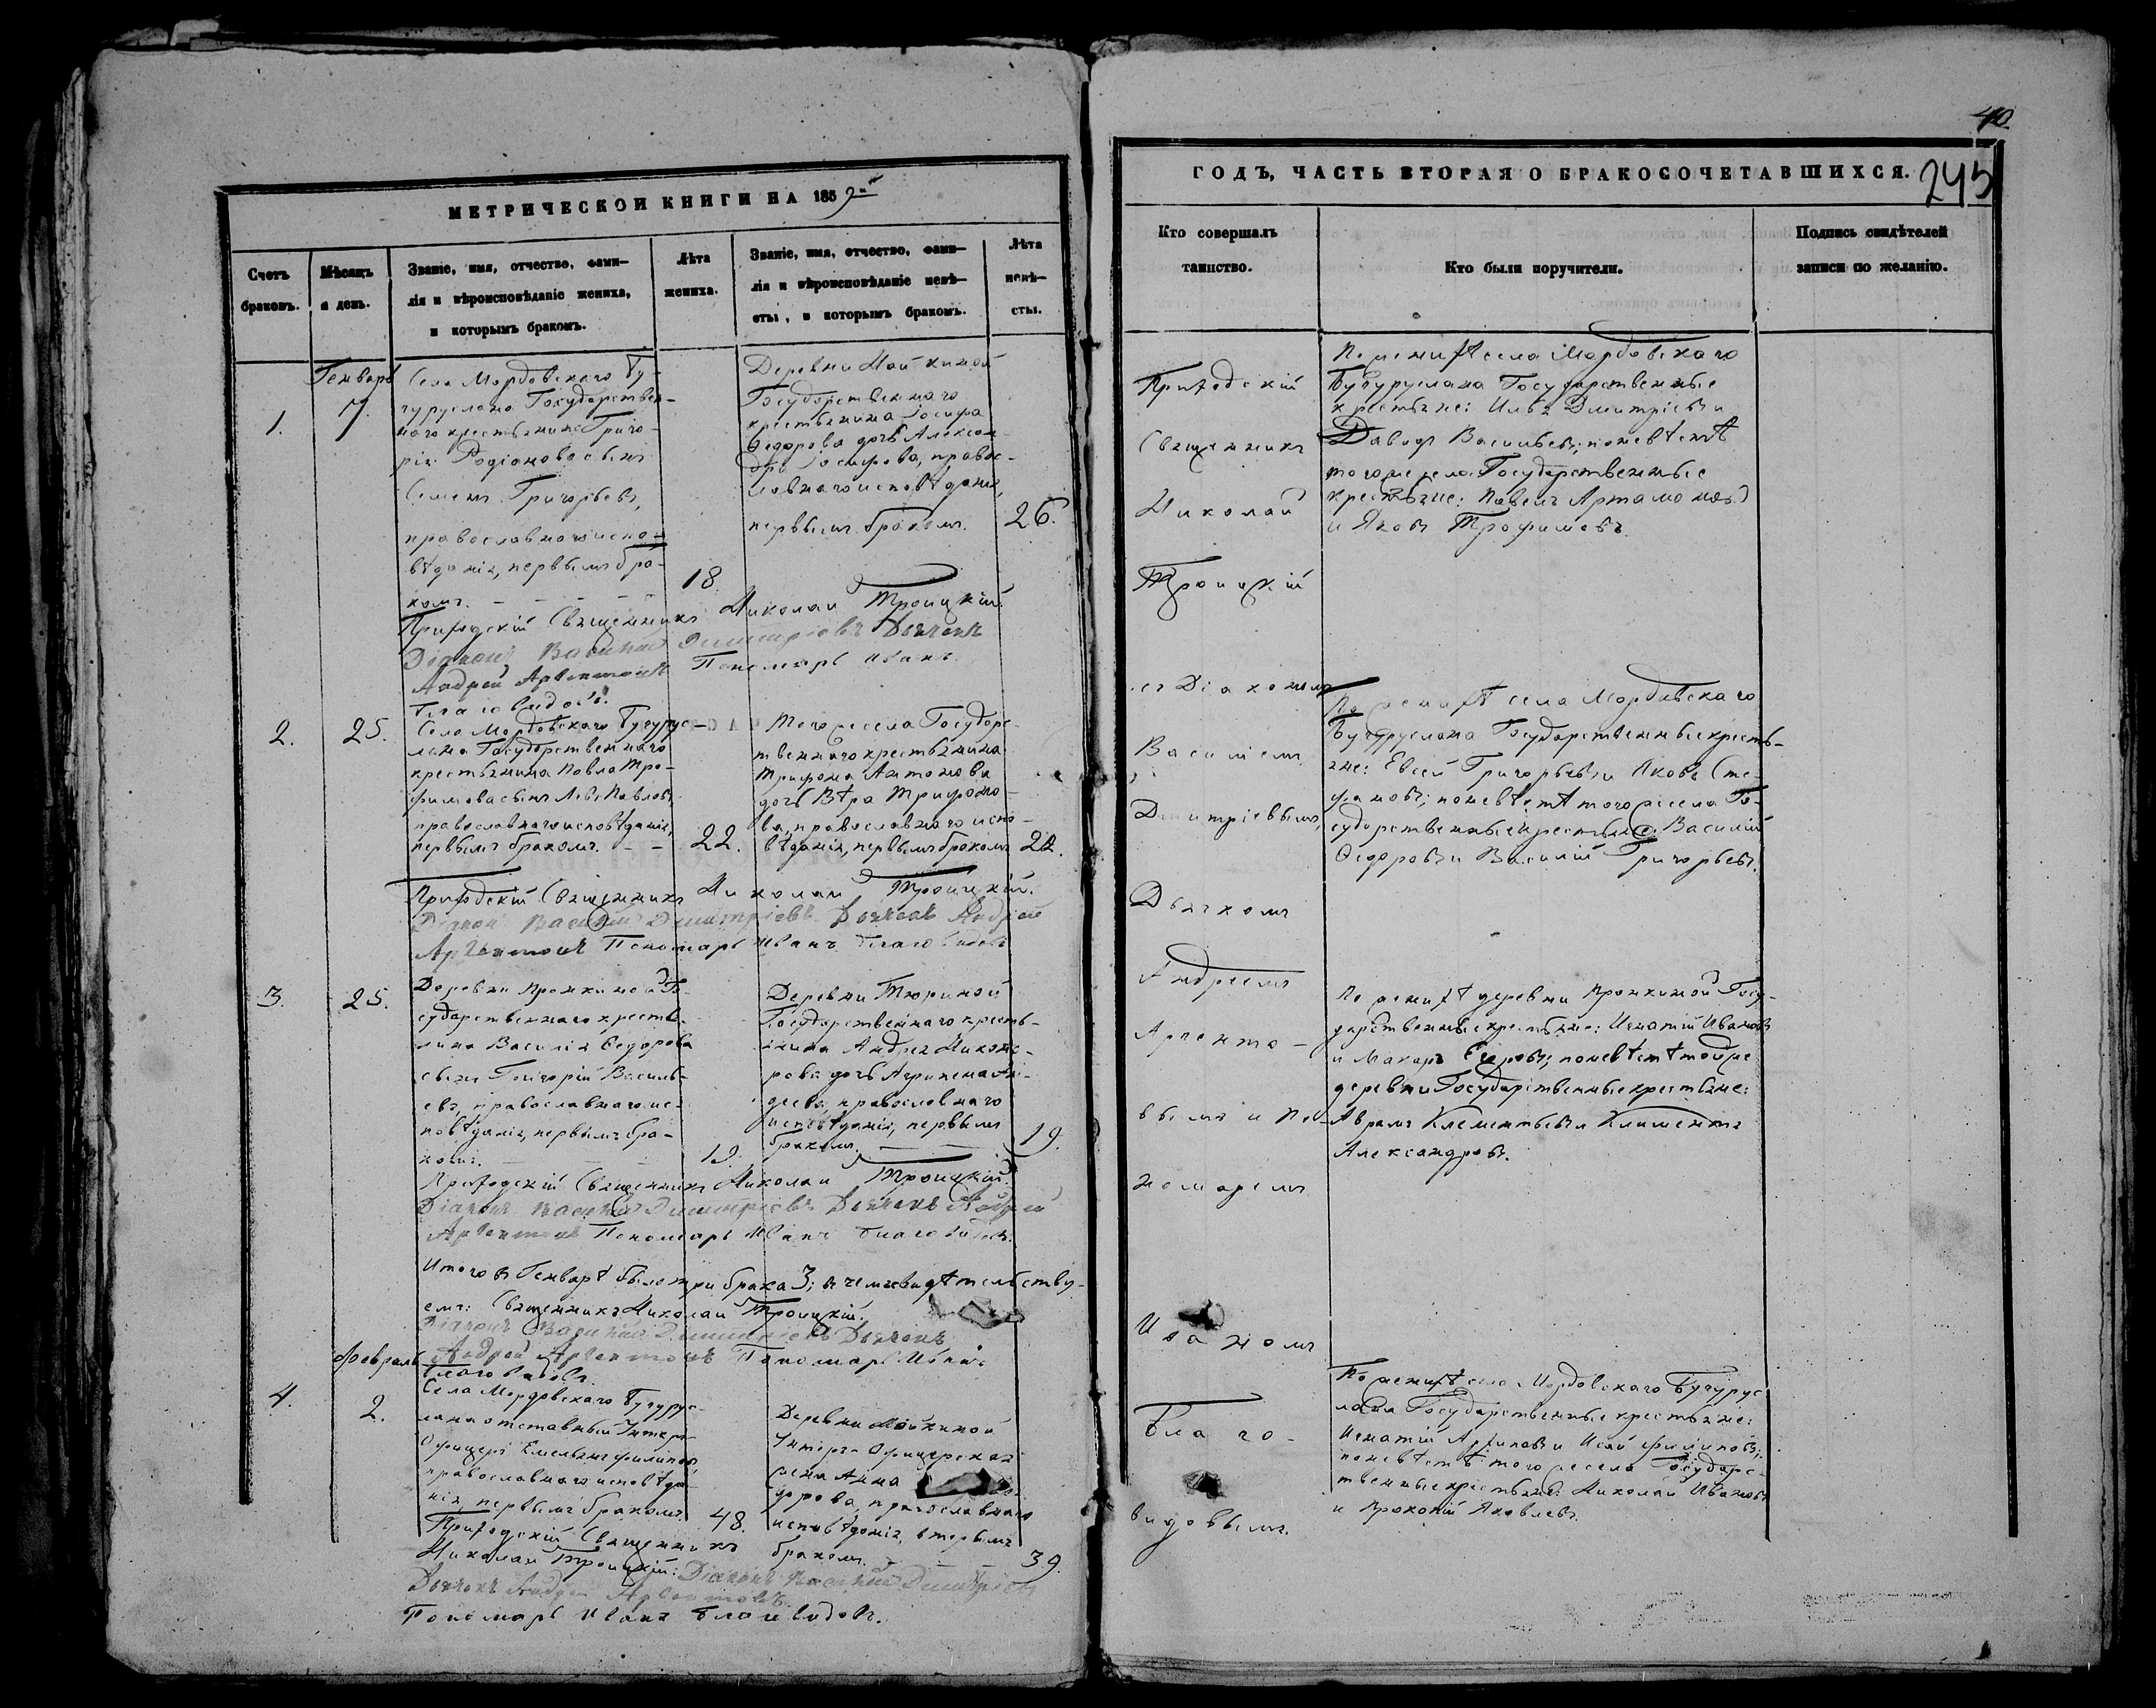 МЕТРИЧЕСКОЙ КНИГИ НА 1859й
Счетъ браковъ.
Мѣсяцъ и день.
Званіе, имя, отчество, фами-
лія и вѣроисповѣданіе жениха,
и которымъ бракомъ.
Лѣта жениха.
Званіе, имя, отчество, фами-
лія и вѣроисповѣданіе невѣ-
сты, и которымъ бракомъ.
Лѣта невѣ-
сты.
1.
Генварь
7.
Села Мордовскаго Бу-
гуруслана Государствен-
наго крестьянина Григо-
рія Родіонова сынъ
Семенъ Григорьевъ,
православнаго испо-
вѣданія, первымъ бра-
комъ.
18.
Деревни Майкиной
Государственнаго
крестьянина Іосифа
Ѳедорова дочь Алексан-
дра Іосифова, правос-
лавнаго исповѣданія,
первымъ бракомъ.
26.
Приходскій Священникъ Николай Троицкій.
Діаконъ Василий Димитріевъ Дьячекъ
Андрей Аргентовъ Пономарь Иванъ
Благовидовъ.
2.
25.
Села Мордовскаго Бугурус-
лана Государственнаго
крестьянина Павла Тро-
фимова сынъ Левъ Павловъ,
православнаго исповѣданія,
первымъ бракомъ.
22.
Того же села Государс-
твеннаго крестьянина
Трифона Антонова
дочь Вѣра Трифоно-
ва, православнаго испо-
вѣданія, первымъ бракомъ
22.
Приходскій Священникъ Николай Троицкій.
Діаконъ Василий Димитріевъ Дьячекъ Андрей
Аргентовъ Пономарь Иванъ Благовидовъ
3.
25.
Деревни Пронкиной Го-
сударственнаго кресть-
янина Василія Ѳедорова
сынъ Григорій Василь-
евъ, православнаго ис-
повѣданія, первымъ бра-
комъ.
19.
Деревни Тюриной
Государственнаго кресть-
янина Андрея Никано-
рова дочь Агрипена Ан-
дреева, православнаго
исповѣданія, первымъ
бракомъ.
19.
Приходскій Священникъ Николай Троицкій.
Діаконъ Василий Димитріевъ Дьячекъ Андрей
Аргентовъ Пономарь Иванъ Благовидовъ.
Итого въ Генварѣ было три брака 3; въ чемъ свидѣтельству-
емъ: Священникъ Николай Троицкій.
Діаконъ Василий Димитріевъ Дьячекъ
Андрей Аргентовъ Пономарь Иванъ
Благовидовъ.
Февраль
4.
2.
Села Мордовскаго Бугурус-
лана отставный Унтеръ-
Офицеръ Емельянъ Филиповъ,
православнаго исповѣда-
нія, первымъ бракомъ.
48.
Деревни Майкиной
Унтеръ-Офицерская
жена Анна
дорова, православнаго
исповѣданія, вторымъ
бракомъ.
39.
Приходскій Священникъ
Николай Троицкій: Діаконъ Василий Димитріевъ
Дьячекъ Андрей Аргентовъ.
Пономарь Иванъ Благовидовъ.
40.
ГОДЪ, ЧАСТЬ ВТОРАЯ О БРАКОСОЧЕТАВШИХСЯ.
245
Кто совершалъ
таинство.
Кто были поручители.
Подпись свидѣтелей
записи по желанію.
Приходскій
Священникъ
Николай
Троицкій
съ Діакономъ
Василіемъ
Димитріевымъ,
Дьячкомъ
Андреемъ
Аргенто-
вымъ и По-
номаремъ
Иваномъ
Благо-
видовымъ.
По женихѣ села Мордовскаго
Бугуруслана Государственные
крестьяне: Илья Дмитріевъ и
Давидъ Васильевъ; по невѣстѣ
того же села Государственные
крестьяне: Павелъ Артамоновъ
и Яковъ Трофимовъ.
По женихѣ села Мордовскаго
Бугуруслана Государственные кресть-
яне: Евсей Григорьевъ и Яковъ Сте-
фановъ; по невѣстѣ того же села Го-
сударственные крестьяне: Василій
Ѳедоровъ и Василій Григорьевъ.
По женихѣ деревни Пронкиной Госу-
дарственные крестьяне: Игнатій Ивановъ
и Макаръ Егоровъ; по невѣстѣ той же
деревни Государственные крестьяне:
Аврамъ Клементьевъ и Климентъ
Александровъ.
По женихѣ села Мордовскаго Бугурус-
лана Государственные крестьяне:
Игнатій Архиповъ и Исай Филиповъ;
по невѣстѣ того же села Государс-
твенные крестьяне: Николай Ивановъ
и Прокопій Яковлевъ.